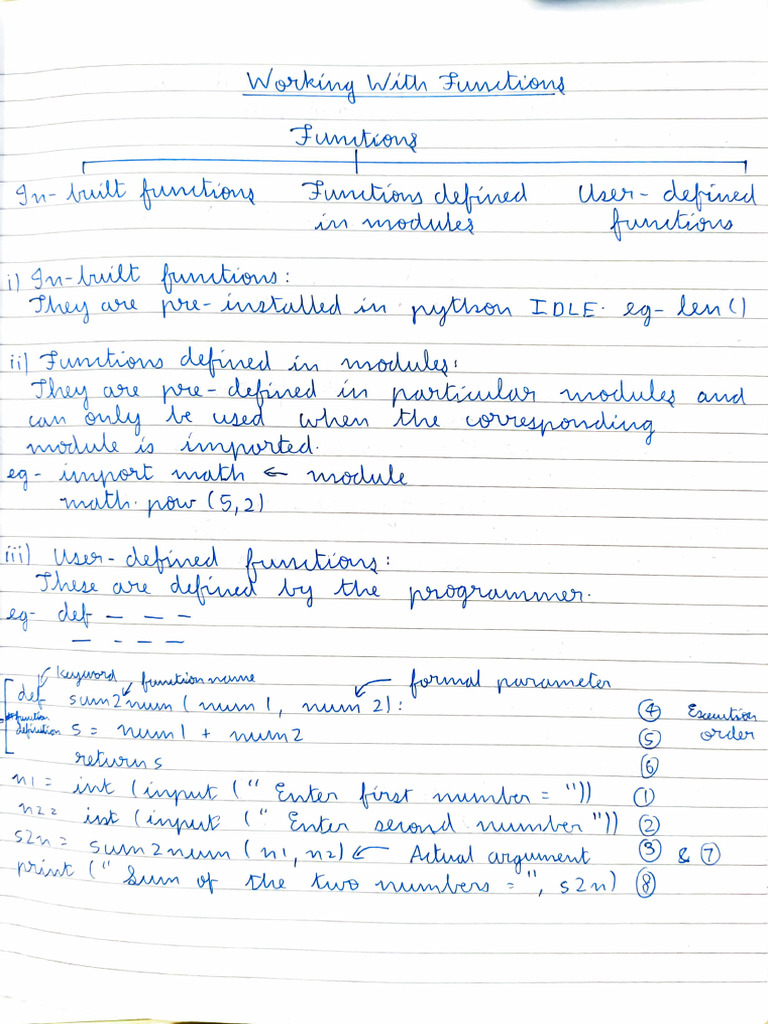 Working With Functions
Functions
In-built functions Functions defined in modules User-defined functions
i) In-built functions:
They are pre-installed in python IDLE. eg- len()
ii) Functions defined in modules:
They are pre-defined in particular modules and
can only be used when the corresponding
module is imported.
eg- import math ← module
math.pow (5,2)
iii) User-defined functions:
These are defined by the programmer.
eg- def — — —
— - — —
keyword function name formal parameter
def sum2num (num 1, num 2): ④ Execution order
function definition s = num1 + num2 ⑤
return s ⑥
n1 = int (input (" Enter first number = ")) ①
n2 = int (input (" Enter second number ")) ②
s2n = sum2num (n1, n2) ← Actual argument ③ & ⑦
print (" Sum of the two numbers =", s2n) ⑧